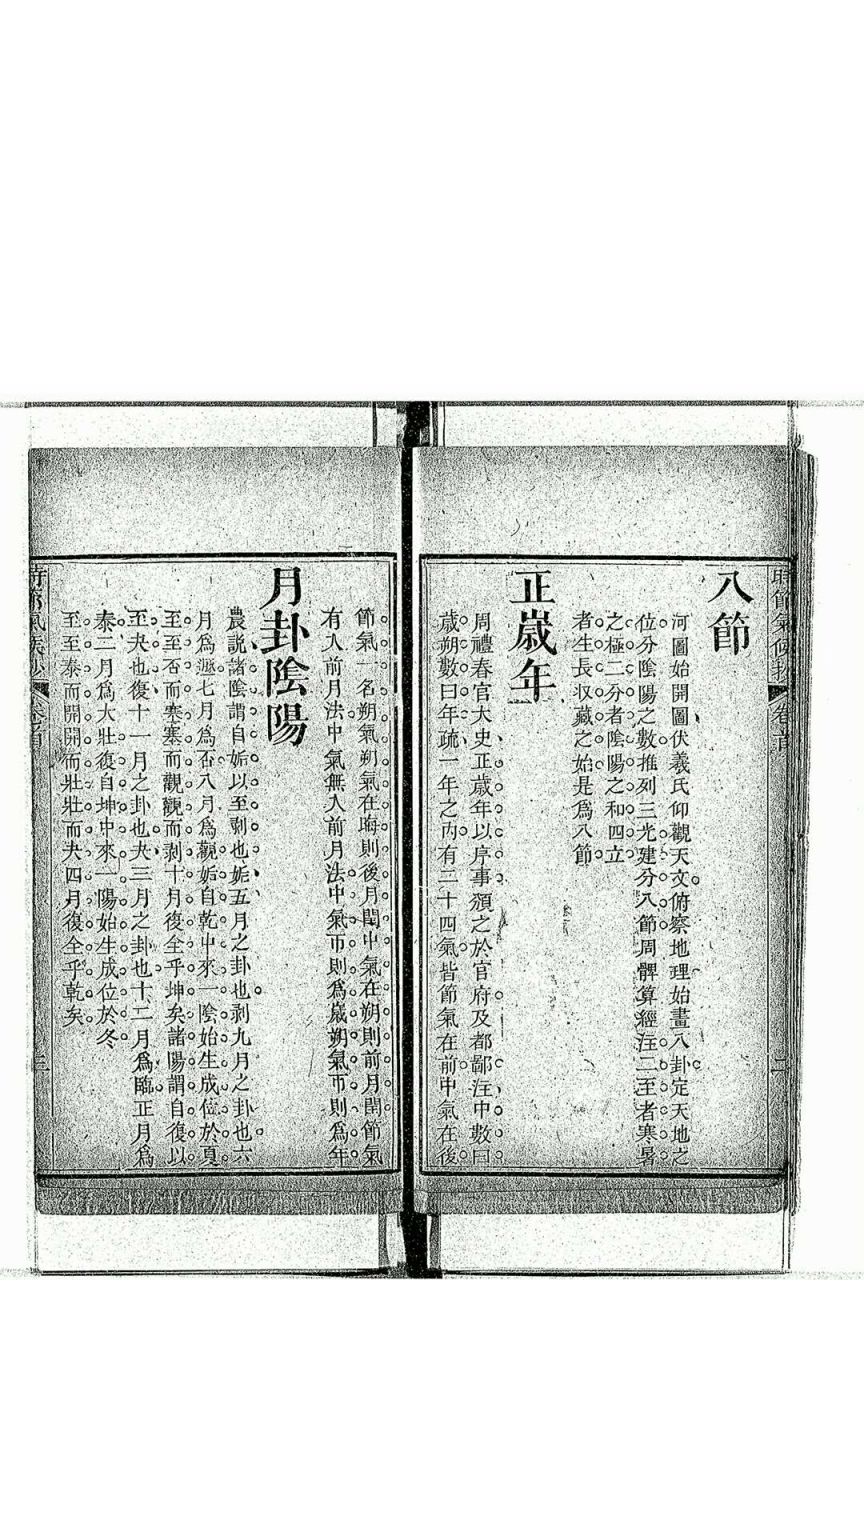 時節氣候抄 卷首 二
八節
河圖始開圖伏羲氏仰觀天文俯察地理始畫八卦定天地之
位分陰陽之數推列三光建分八節周髀算經注二至者寒暑
之極二分者陰陽之和四立
者生長収藏之始是爲八節
正歲年
周禮春官大史正歲年以序事頒之於官府及都鄙注中數曰
歲朔數曰年疏一年之內有二十四氣皆節氣在前中氣在後
節氣一名朔氣朔氣在晦則後月閏中氣在朔則前月閏節氣
有入前月法中氣無入前月法中氣帀則爲歲朔氣帀則爲年
月卦陰陽
農説諸陰謂自姤以至剥也姤五月之卦也剥九月之卦也六
月爲遯七月爲否八月爲觀姤自乾中來一陰始生成位於夏
至至否而塞塞而觀觀而剥十月復全乎坤矣諸陽謂自復以
至夬也復十一月之卦也夬三月之卦也十二月爲臨正月爲
泰二月爲大壯復自坤中來一陽始生成位於冬
至至泰而開開而壯壯而夬四月復全乎乾矣
時節氣候抄 卷首